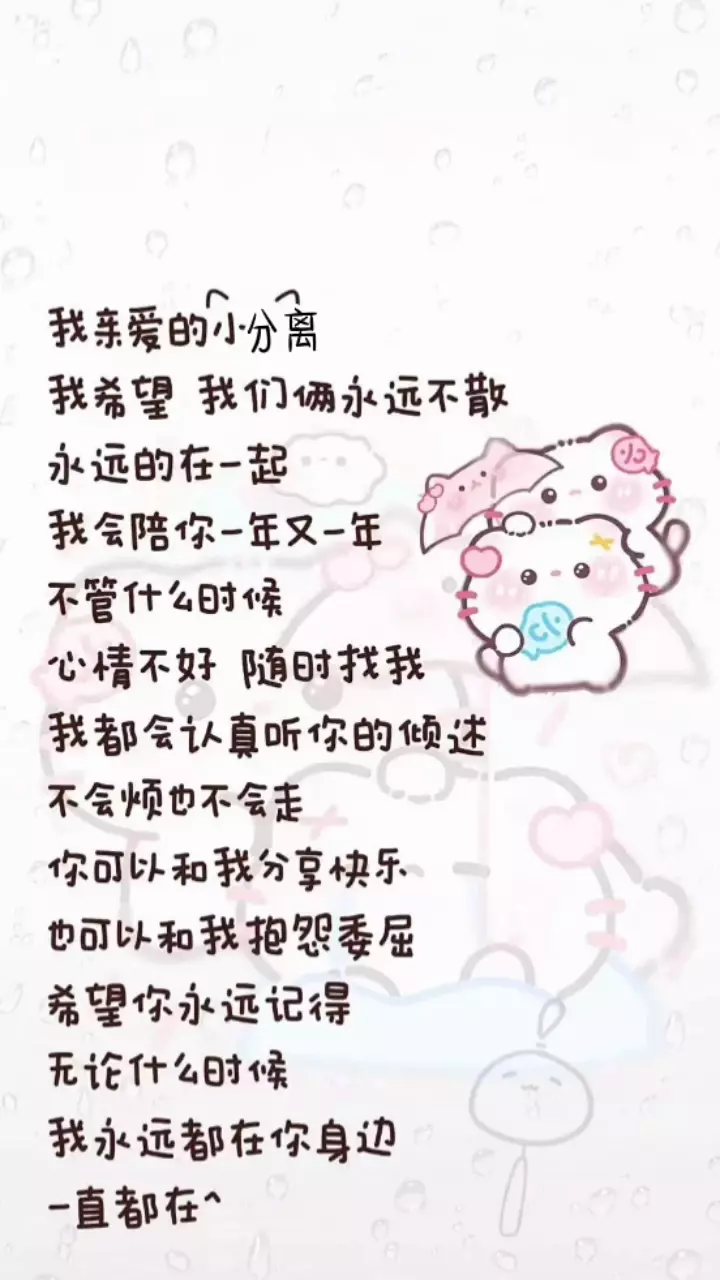 我亲爱的小分离
我希望 我们俩永远不散
永远的在一起
我会陪你一年又一年
不管什么时候
心情不好 随时找我
我都会认真听你的倾述
不会烦也不会走
你可以和我分享快乐
也可以和我抱怨委屈
希望你永远记得
无论什么时候
我永远都在你身边
一直都在^